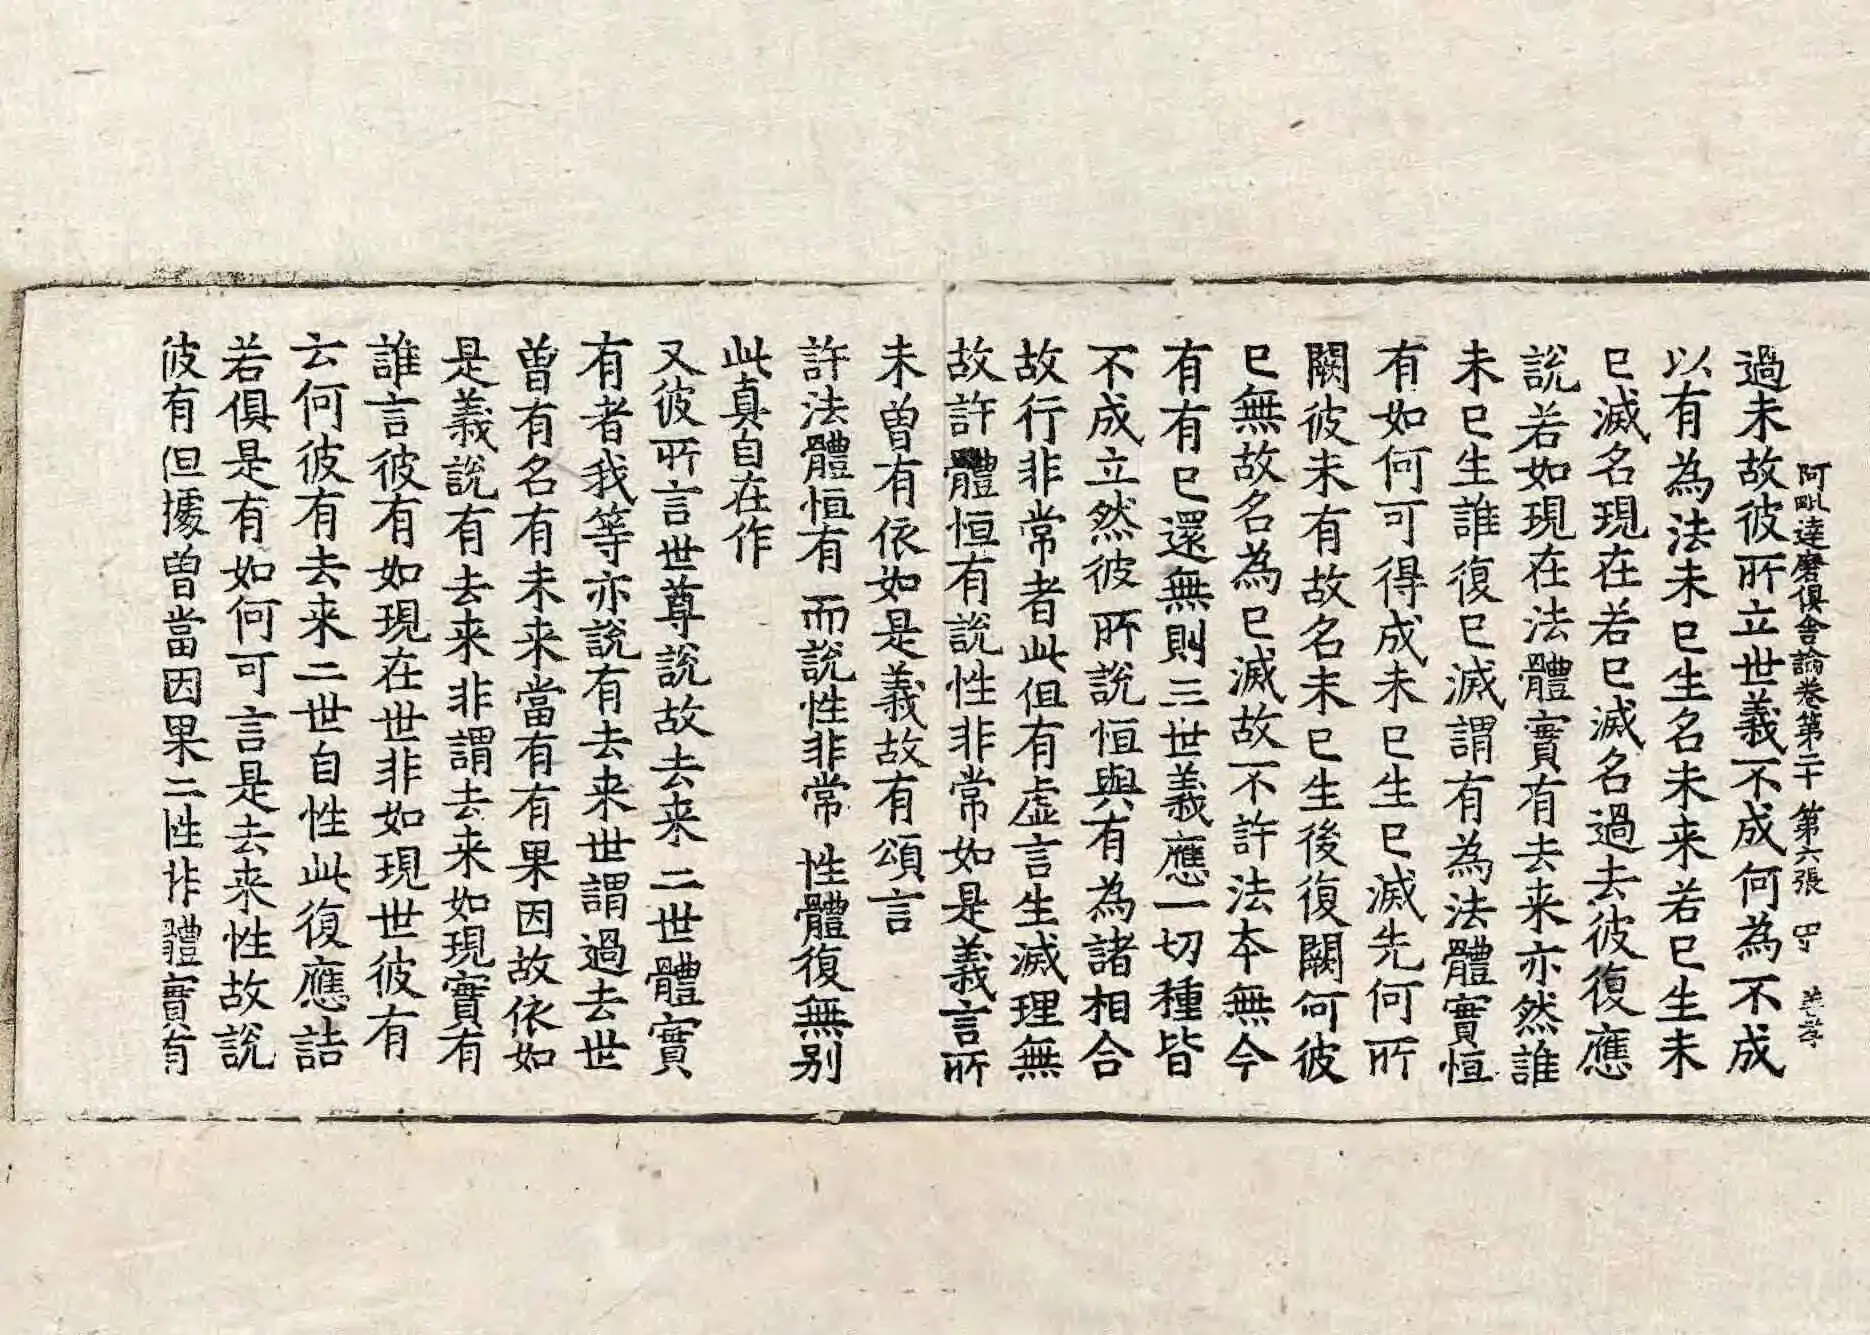 阿毗達磨俱舍論卷第二十 第六張
過未故彼所立世義不成何為不成
以有為法未已生名未来若已生未
已滅名現在若已滅名過去彼復應
說若如現在法體實有去来亦然誰
未已生誰復已滅謂有為法體實恒
有如何可得成未已生已滅先何所
闕彼未有故名未已生後復闕何彼
已無故名為已滅故不許法本無今
有有已還無則三世義應一切種皆
不成立然彼所說恒與有為諸相合
故行非常者此但有虛言生滅理無
故許體恒有說性非常如是義言所
未曾有依如是義故有頌言
許法體恒有 而說性非常 性體復無別
此真自在作
又彼所言世尊說故去来二世體實
有者我等亦說有去来世謂過去世
曾有名有未来當有有果因故依如
是義說有去来非謂去来如現實有
誰言彼有如現在世非如現世彼有
云何彼有去来二世自性此復應詰
若俱是有如何可言是去来性故說
彼有但據曾當因果二性非體實有